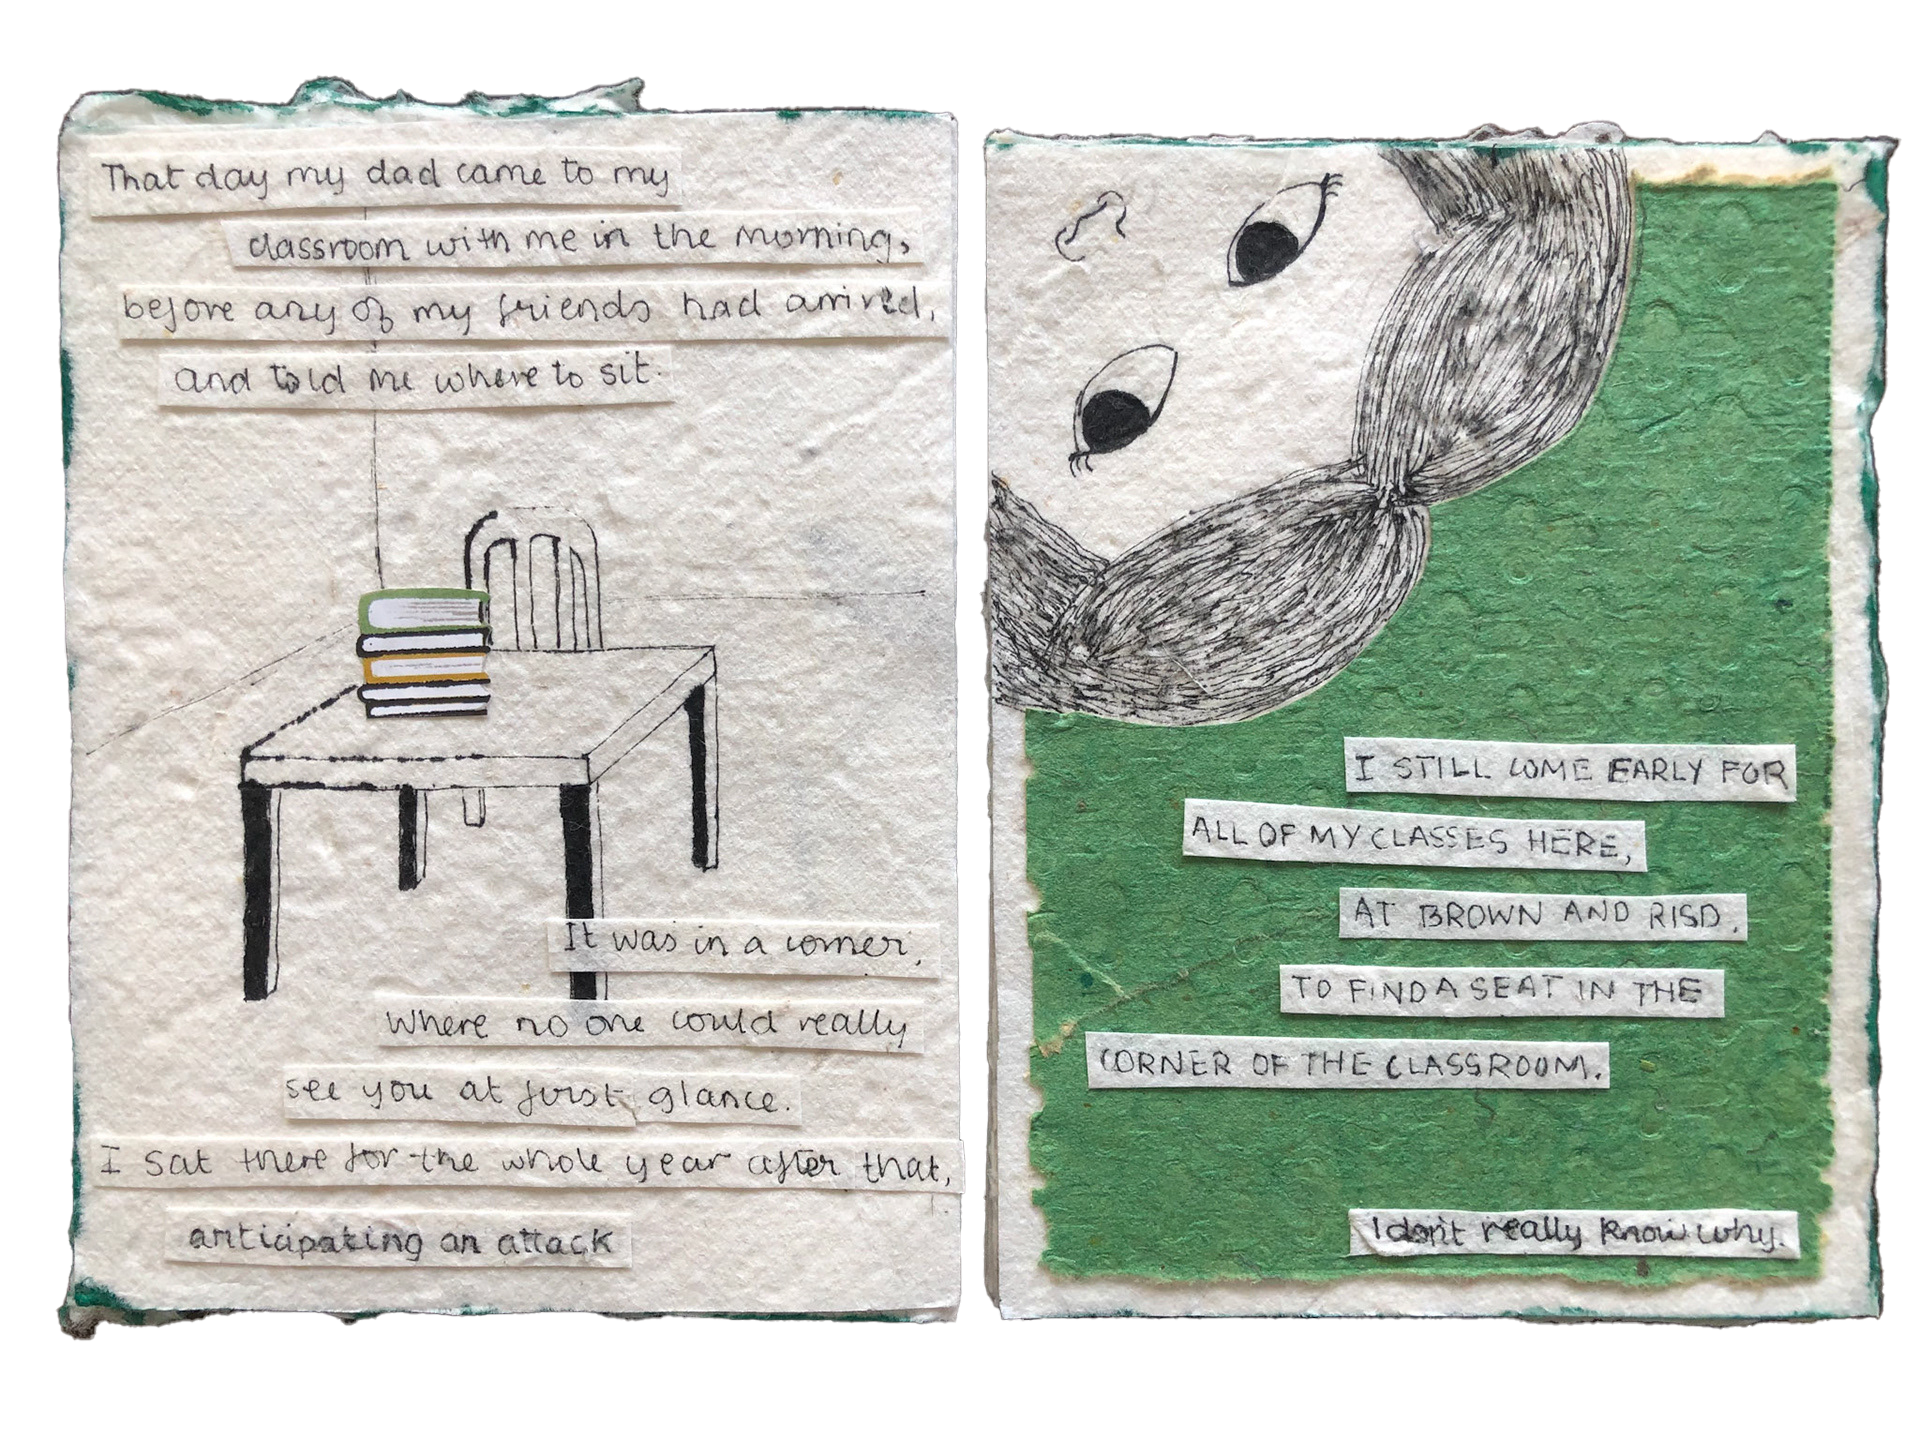 That day my dad came to my
classroom with me in the morning,
before any of my friends had arrived,
and told me where to sit.
It was in a corner,
where no one could really
see you at first glance.
I sat there for the whole year after that,
anticipating an attack
I STILL COME EARLY FOR
ALL OF MY CLASSES HERE,
AT BROWN AND RISD,
TO FIND A SEAT IN THE
CORNER OF THE CLASSROOM.
I don't really know why.